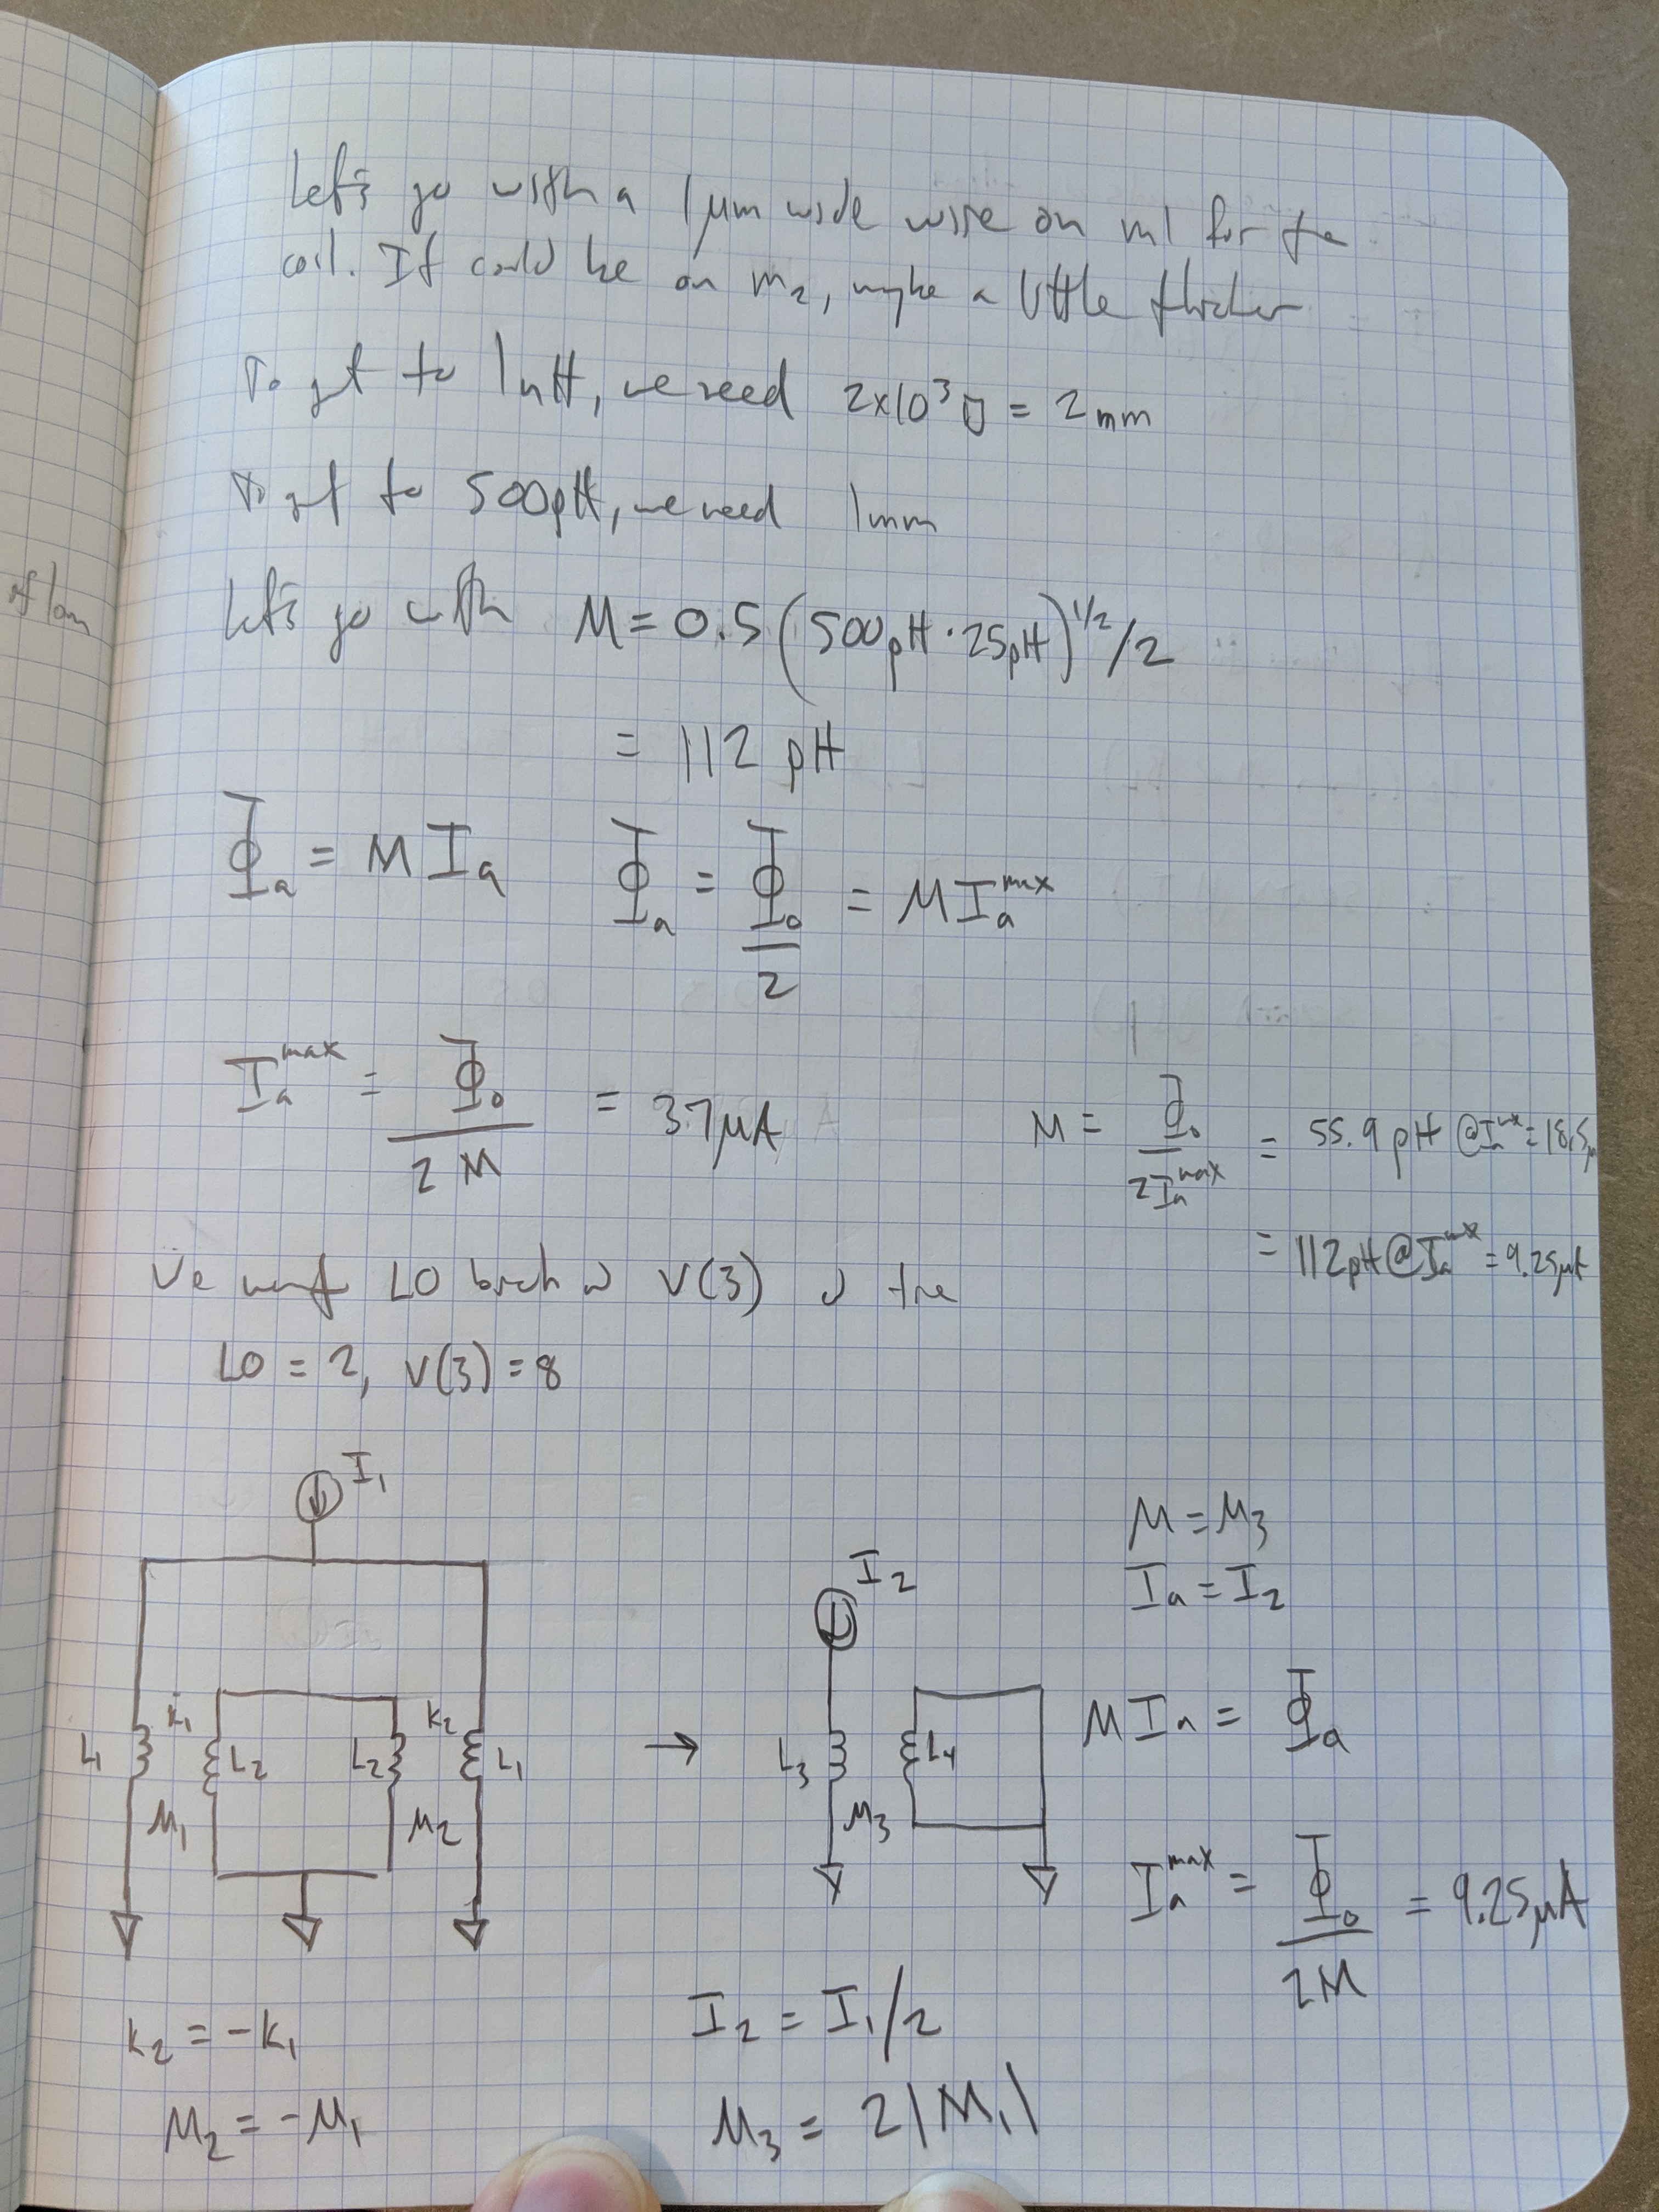 Let's go with a 1μm wide wire on m1 for the
coil. It could be on m2, maybe a little thicker
To get to 1nH, we need 2x10³ □ = 2mm
To get to 500pH, we need 1mm
of
Let's go with M = 0.5 (500pH · 25pH)^1/2 /2
= 112 pH
Φa = M Ia   Φa = Φ0/2 = M Ia^max
Ia^max = Φ0/2M = 37μA   M = Φ0/2Ia^max = 55.9 pH @ Ia^max = 18.5μ
= 112pH @ Ia^max = 9.25μA
We want LO V(3)
LO = 2, V(3) = 8
I1
I2
M = M3
Ia = I2
L1 K1 L2 L2 K2 L1 → L3 L4
M1 M2 M3
M Ia = Φa
Ia^max = Φ0/2M = 9.25μA
K2 = -K1
I2 = I1/2
M2 = -M1
M3 = 2|M1|